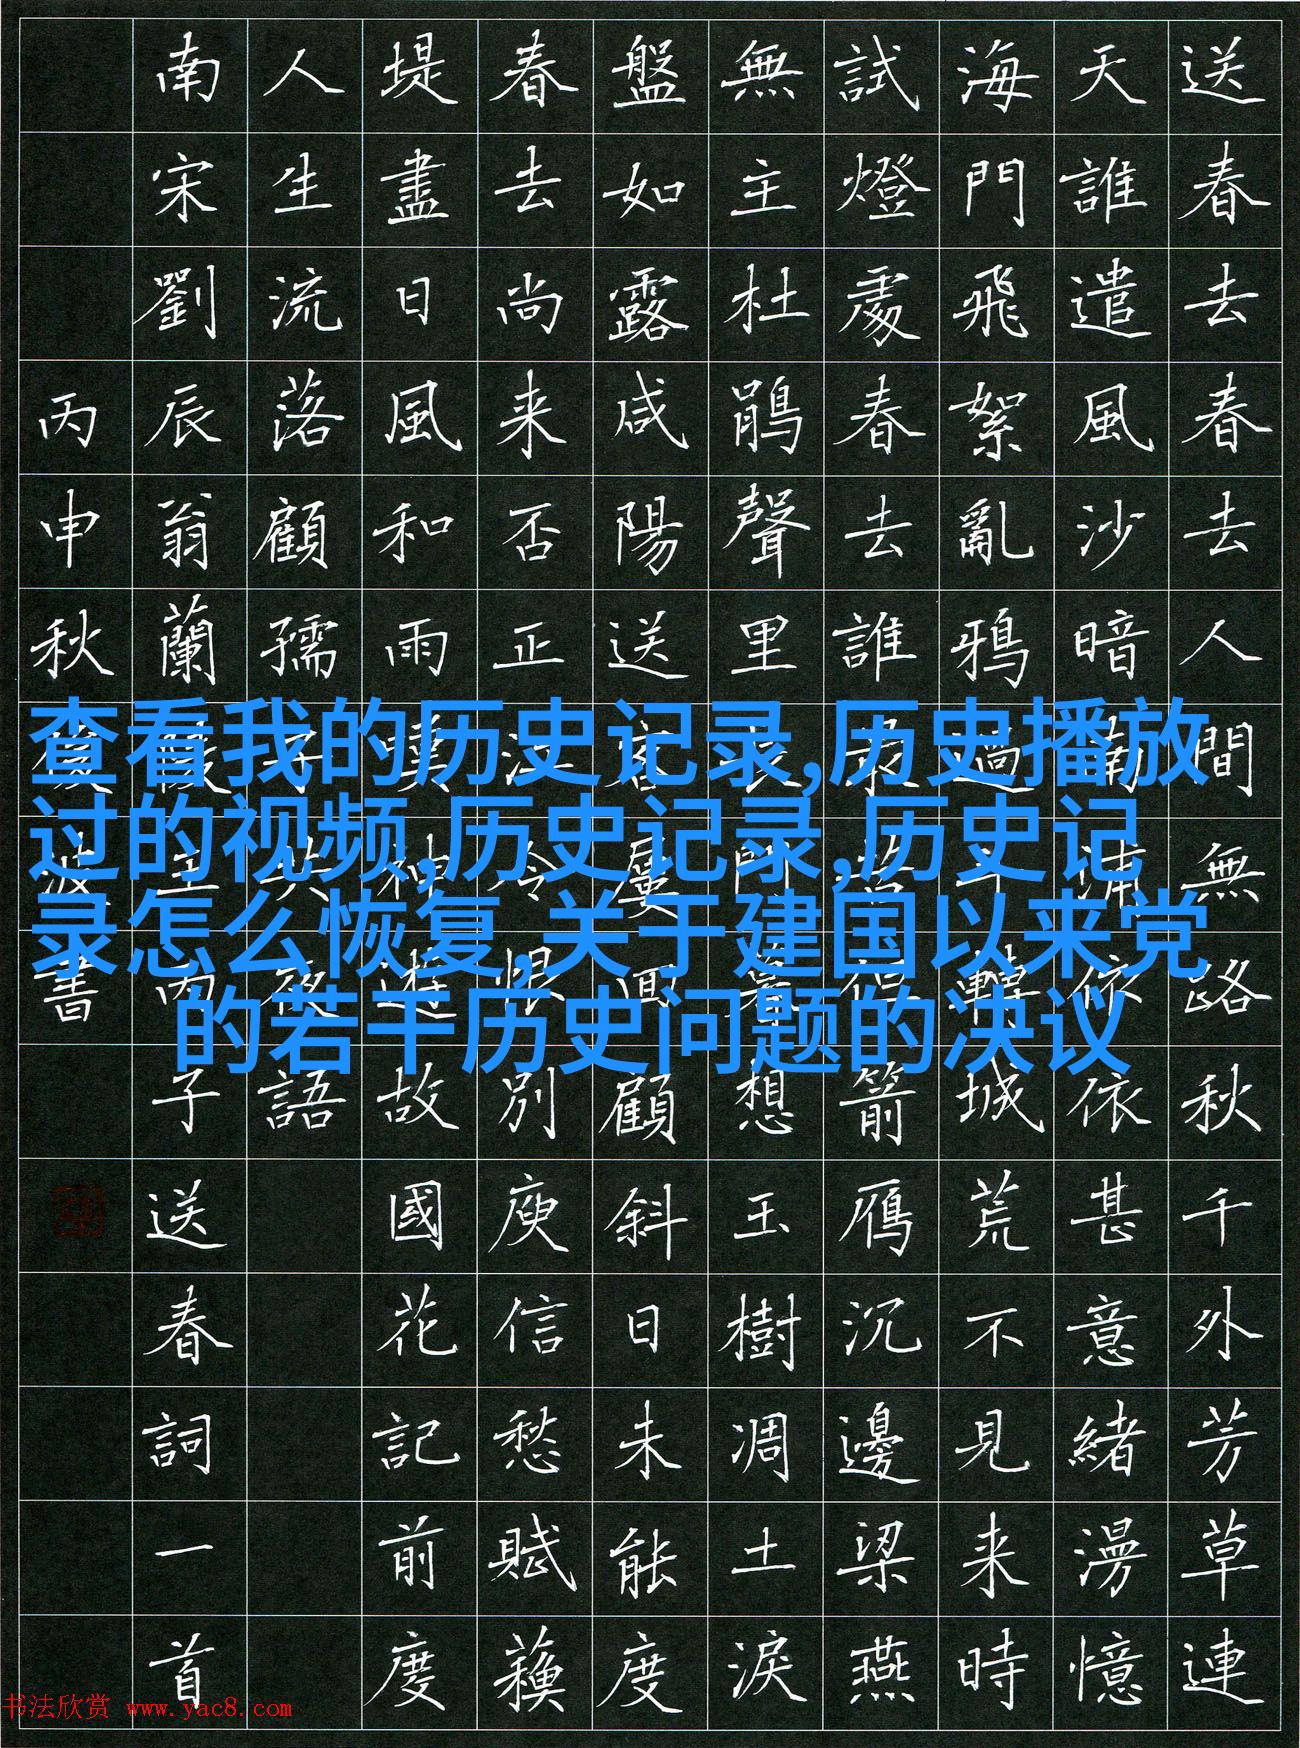 送春去春去人間無路秋千外芳草連
天誰遣風沙暗南浦依依甚意緒漫憶
海門飛絮亂鴉過斗轉城荒不見来時
試燈處春去誰最苦但箭雁沉邊梁燕
無主杜鵑聲里長門暮想玉樹凋土淚
盤如露咸陽送客屢回顧斜日未能度
春去尚来否正江令恨別庾信愁賦蘓
堤盡日風和雨嘆神遊故國花記前度
人生流落顧孺子共夜語
南宋劉辰翁蘭陵王丙子送春詞一首
丙申秋書
查看我的历史记录,历史播放
过的视频,历史记录,历史记
录怎么恢复,关于建国以来党
的若干历史问题的决议
书法欣赏 www.yac8.com